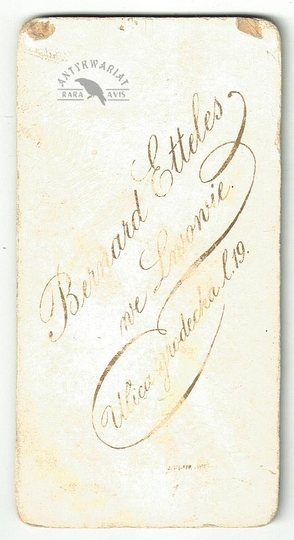 ANTYKWARIAT
RARA AVIS
Bernard Etteles
we Lwowie.
Ulica grodecka l. 19.